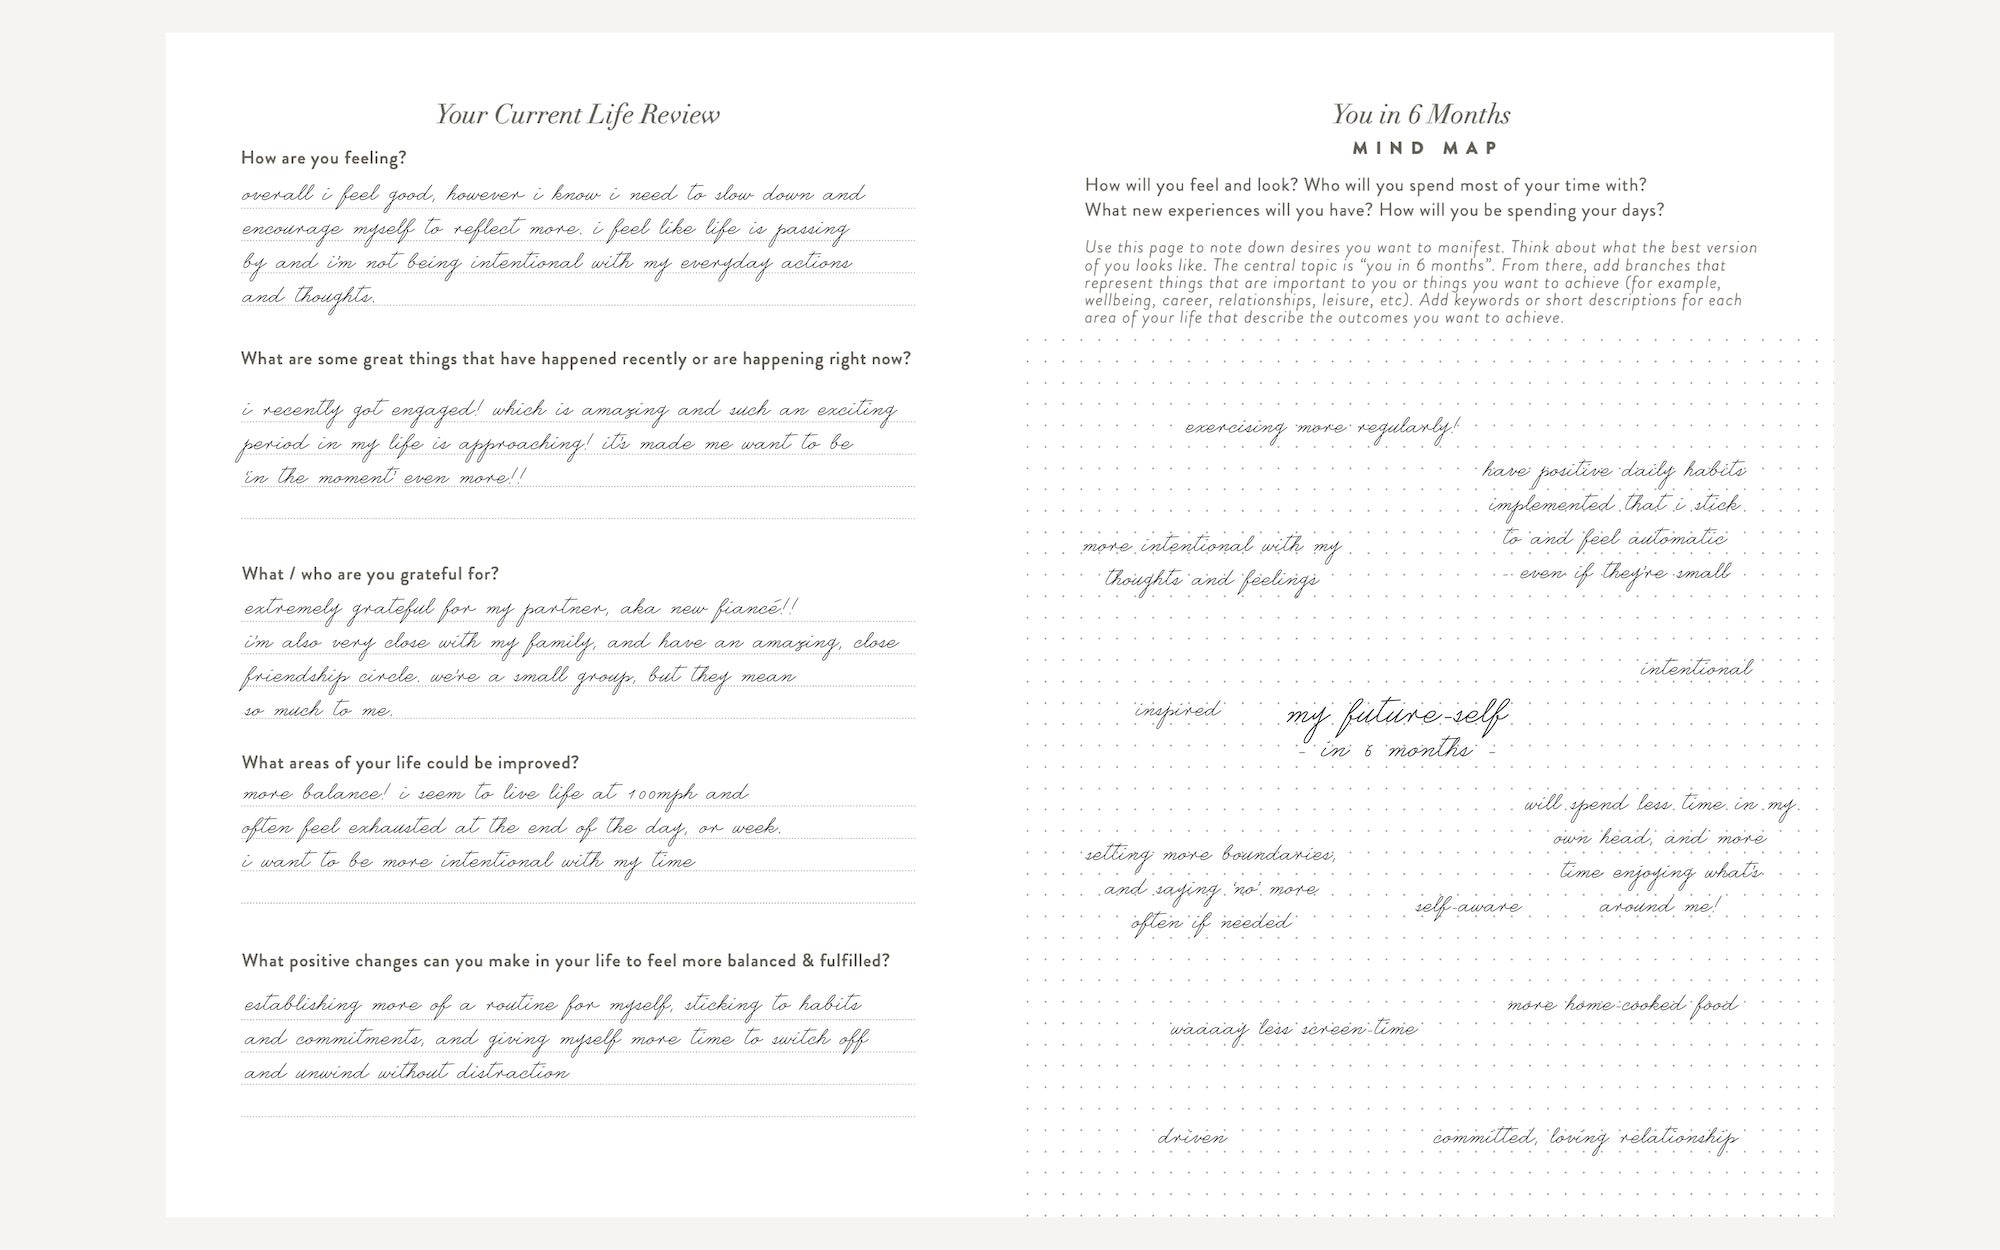 Your Current Life Review
How are you feeling?
overall i feel good, however i know i need to slow down and
encourage myself to reflect more. i feel like life is passing
by and i'm not being intentional with my everyday actions
and thoughts.
What are some great things that have happened recently or are happening right now?
i recently got engaged! which is amazing and such an exciting
period in my life is approaching! it's made me want to be
'in the moment' even more!!
What / who are you grateful for?
extremely grateful for my partner, aka new fiancé!!
i'm also very close with my family, and have an amazing, close
friendship circle. we're a small group, but they mean
so much to me.
What areas of your life could be improved?
more balance! i seem to live life at 100mph and
often feel exhausted at the end of the day, or week.
i want to be more intentional with my time
What positive changes can you make in your life to feel more balanced & fulfilled?
establishing more of a routine for myself, sticking to habits
and commitments, and giving myself more time to switch off
and unwind without distraction
You in 6 Months
MIND MAP
How will you feel and look? Who will you spend most of your time with?
What new experiences will you have? How will you be spending your days?
Use this page to note down desires you want to manifest. Think about what the best version
of you looks like. The central topic is “you in 6 months”. From there, add branches that
represent things that are important to you or things you want to achieve (for example,
wellbeing, career, relationships, leisure, etc). Add keywords or short descriptions for each
area of your life that describe the outcomes you want to achieve.
exercising more regularly!
have positive daily habits
implemented that i stick
to and feel automatic
- even if they're small
more intentional with my
thoughts and feelings
intentional
inspired
my future-self
- in 6 months -
will spend less time in my
own head, and more
time enjoying what's
around me!
setting more boundaries,
and saying 'no' more
often if needed
self-aware
more home-cooked food
waaaay less screen-time
driven
committed, loving relationship